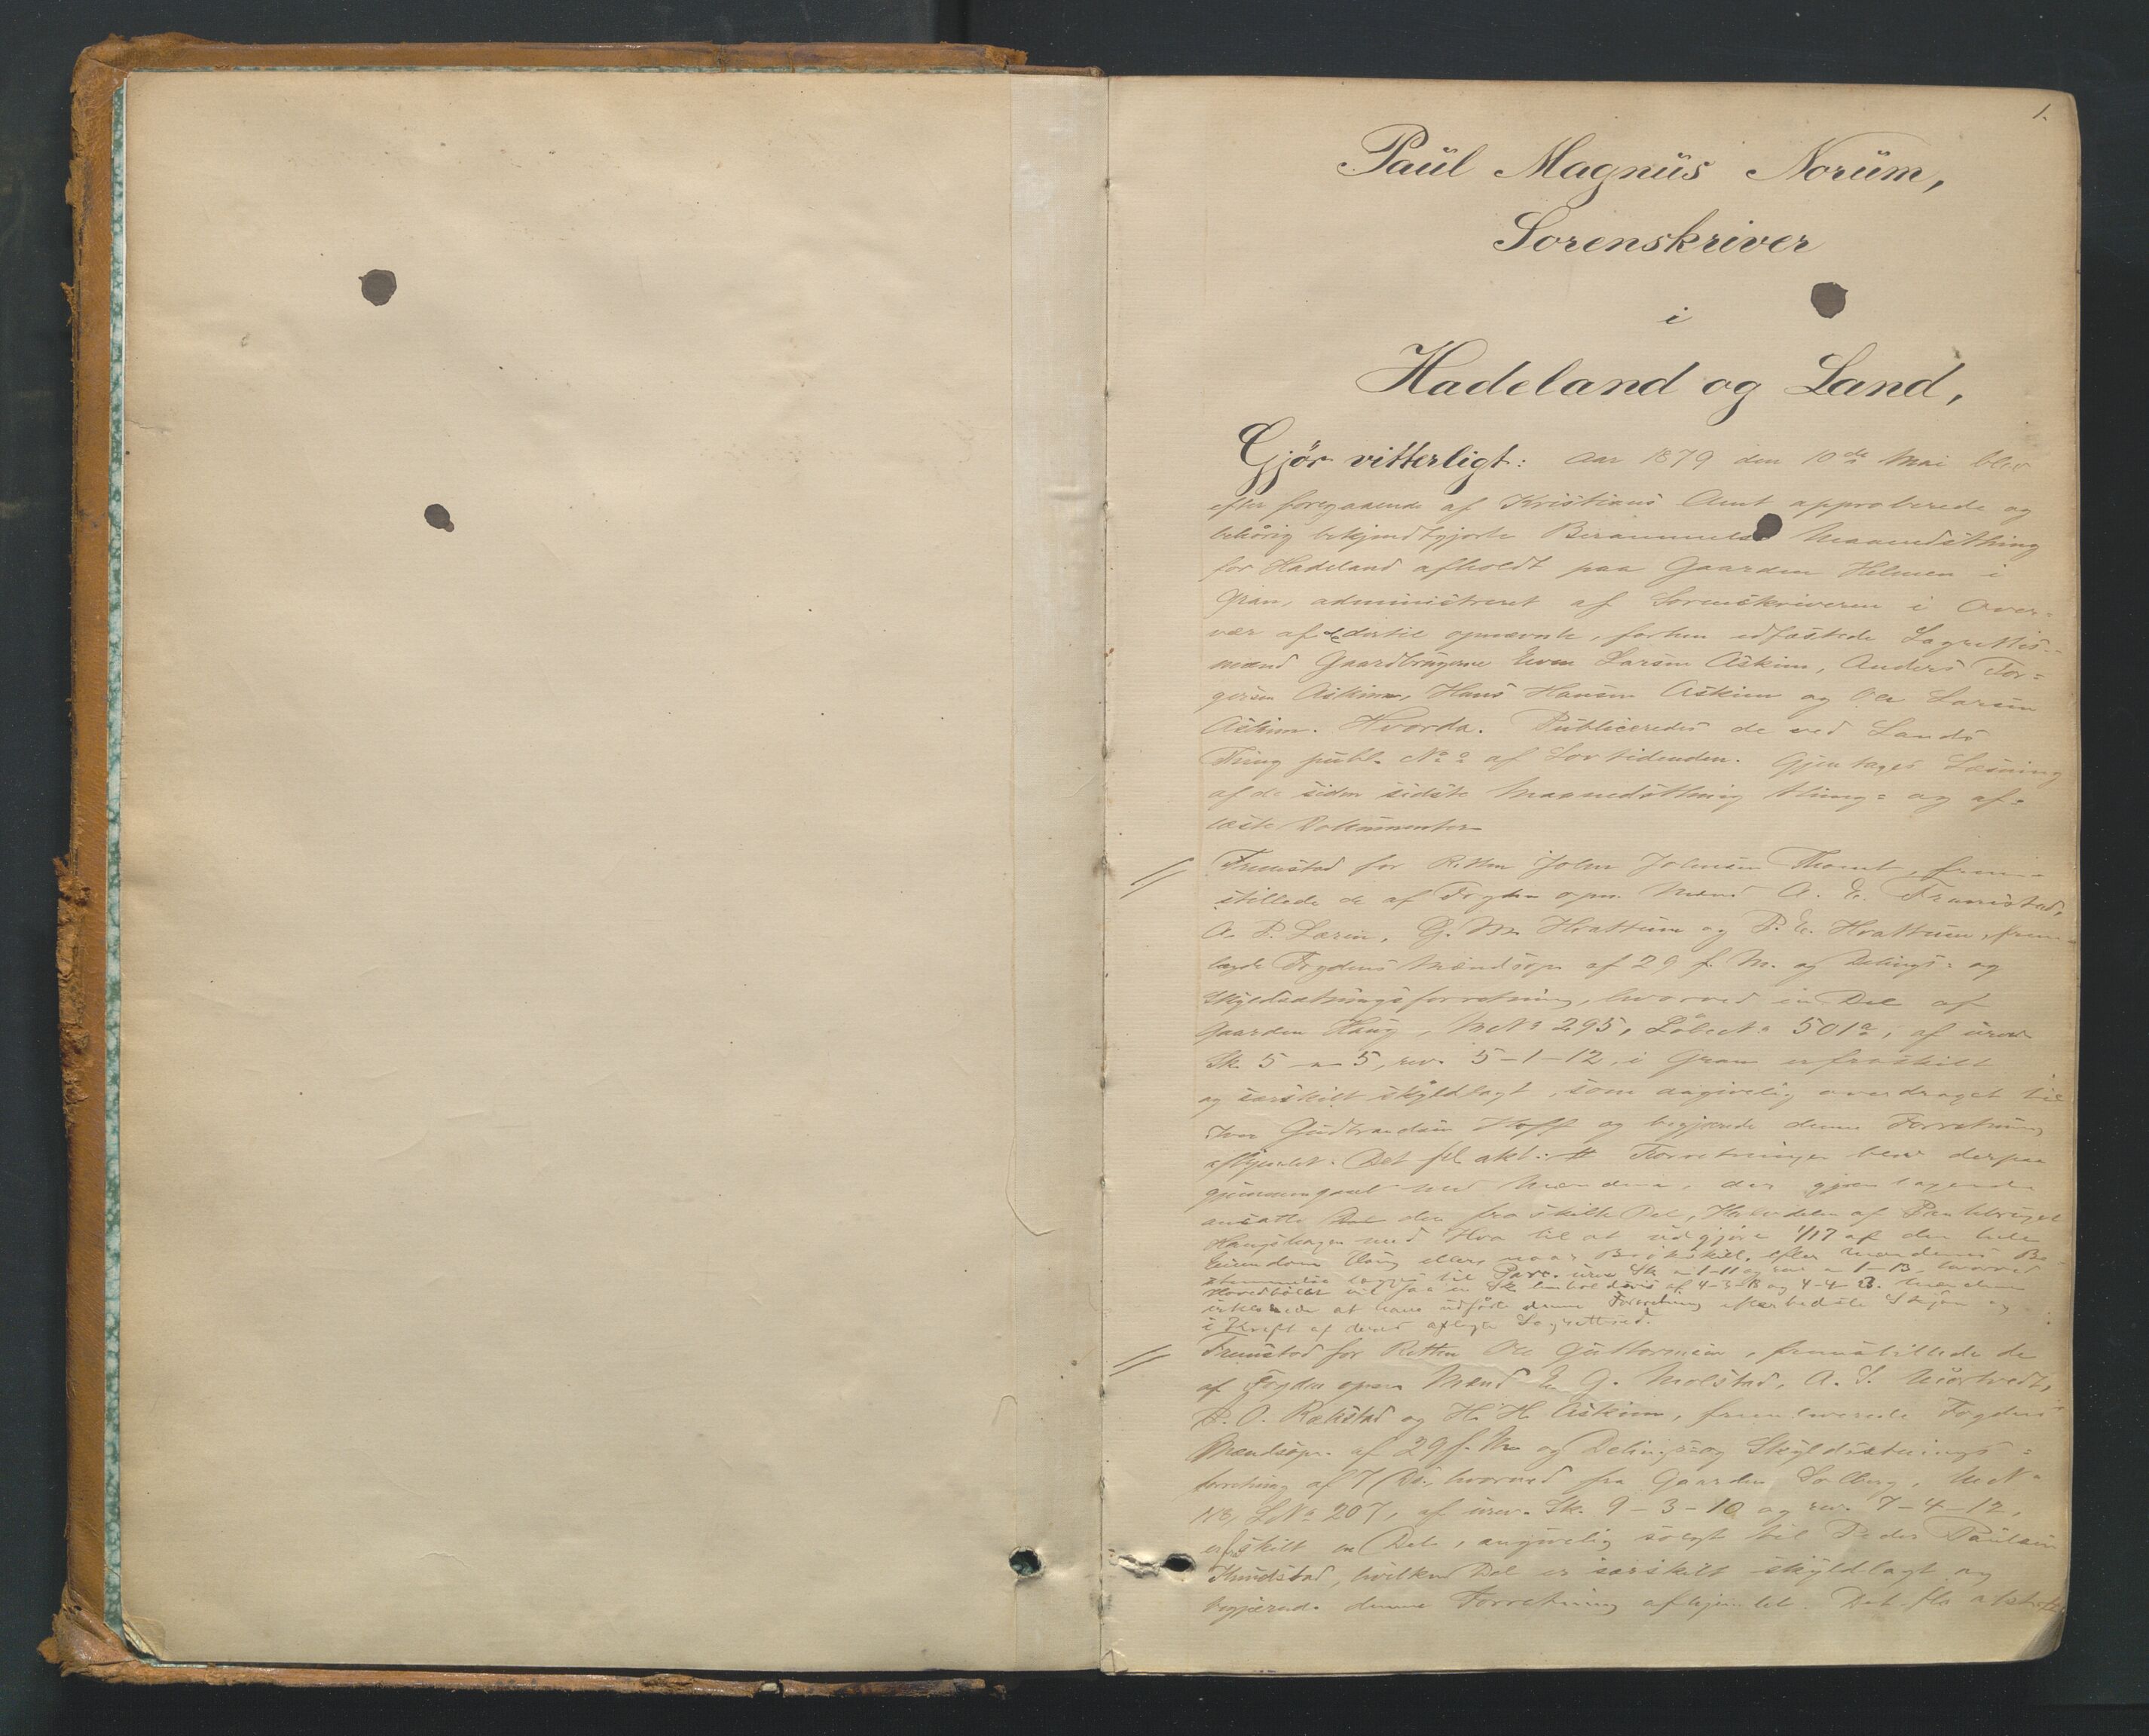 1.
Paül Magnüs Norüm,
Sorenskriver
i
Hadeland og Land,
Gjør vitterligt: Aar 1879 den 10de Mai blev
efter foregaaende af Kristians Amt approberede og
behörig bekjendtgjorte Berammelse Maanedsthing
for Hadeland afholdt paa Gaarden Helmen i
Gran, administreret af Sorenskriveren i Over-
vær af de dertil opnævnte, forhen edfæstede Lagrettes-
mænd Gaardbrugerne Iver Larsen Askim, Anders Tor-
gersen Askim, Hans Hansen Askim og Ole Larsen
Askim. Hvorda. Publiceredes de ved Lands
Thing publ. No af Lovtidenden. Gjentages Læsning
af de siden sidste Maanedsthing thing- og af-
læste Dokumenter
Fremstod for Retten John Johnsen Thomt, frem-
stillede de af Fogden opn. Mænd A. E. Framstad,
A. P. Larsen, G. M. Hvattum og P. E. Hvattum, frem-
lagde Fogdens Mændsopn. af 29 f. M. og Delings- og
Skyldsætningsforretning, hvorved en Del af
Gaarden Haug, M.No 295, Löbeno 501a, af urev.
Sk. 5 - 5, rev. 5-1-12, i Gran er fraskilt
og særskilt skyldlagt, som angivelig overdraget til
Iver Gudbrandsen Hoff og begjærede denne Forretning
afhjemlet. Det fl. akt: Forretningen blev derpaa
gjennemgaaet med Mændene, der gjentagende
ansatte den fraskilte Del, Halvdelen af Pantebruget
Haugshagen med Hvo til at udgjøre 1/17 af den hele
Eiendom Haug eller, naar Brökskill. efter Mændenes Be-
stemmelse lægges til Parc. urev Sk 1-11 og rev 1-13, hvorved
Hovedbölet vil faa en Sk. henholdsvis af 4-3-13 og 4-4-23. Mændene
erklærede at have udført denne Forretning efter bedste Skjøn og
i Kraft af deres aflagte Lagrettesed.
Fremstod for Retten Ole Guttormsen, fremstillede de
af Fogden opn. Mænd E. G. Molstad, A. S. Mörtvedt,
P. O. Rækstad og H. H. Askim, fremleverede Fogdens
Mændsopn. af 29 f. M. og Delings- og Skyldsætnings-
forretning af 7 ds., hvorved fra Gaarden Solberg, M.No
L.No 207, af urev. Sk. 9-3-10 og rev. 7-4-12,
er fraskilt en Del, angivelig solgt til Peder Paulsen
Kundstad, hvilken Del er særskilt skyldlagt og
begjærede denne Forretning afhjemlet. Det fl. aktst.